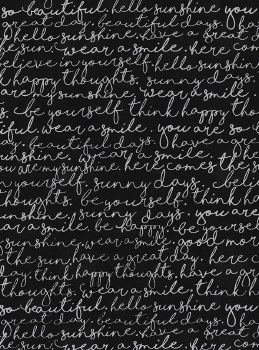 so beautiful. hello sunshine. you
great day. beautiful days.
hello sunshine. have a great
the sun. wear a smile. here come
believe in yourself. hello sunshine.
think happy thoughts. sunny days.
be yourself. think happy
iful. wear a smile. you are so
ay. beautiful days. have a gre
sunshine. wear a smile.
you are my sunshine. here comes the s
n yourself. sunny days. beli
thoughts. be yourself. think
shine. sunny days. you are
ear a smile. be happy. be yo
are my sunshine. wear a smile. good mor
the sun. have a great day. here
day. think happy thoughts. have a gr
thoughts. wear a smile. think
so beautiful. hello sunshine. you
great day. beautiful days.
hello sunshine. have a great
the sun. wear a smile. here com